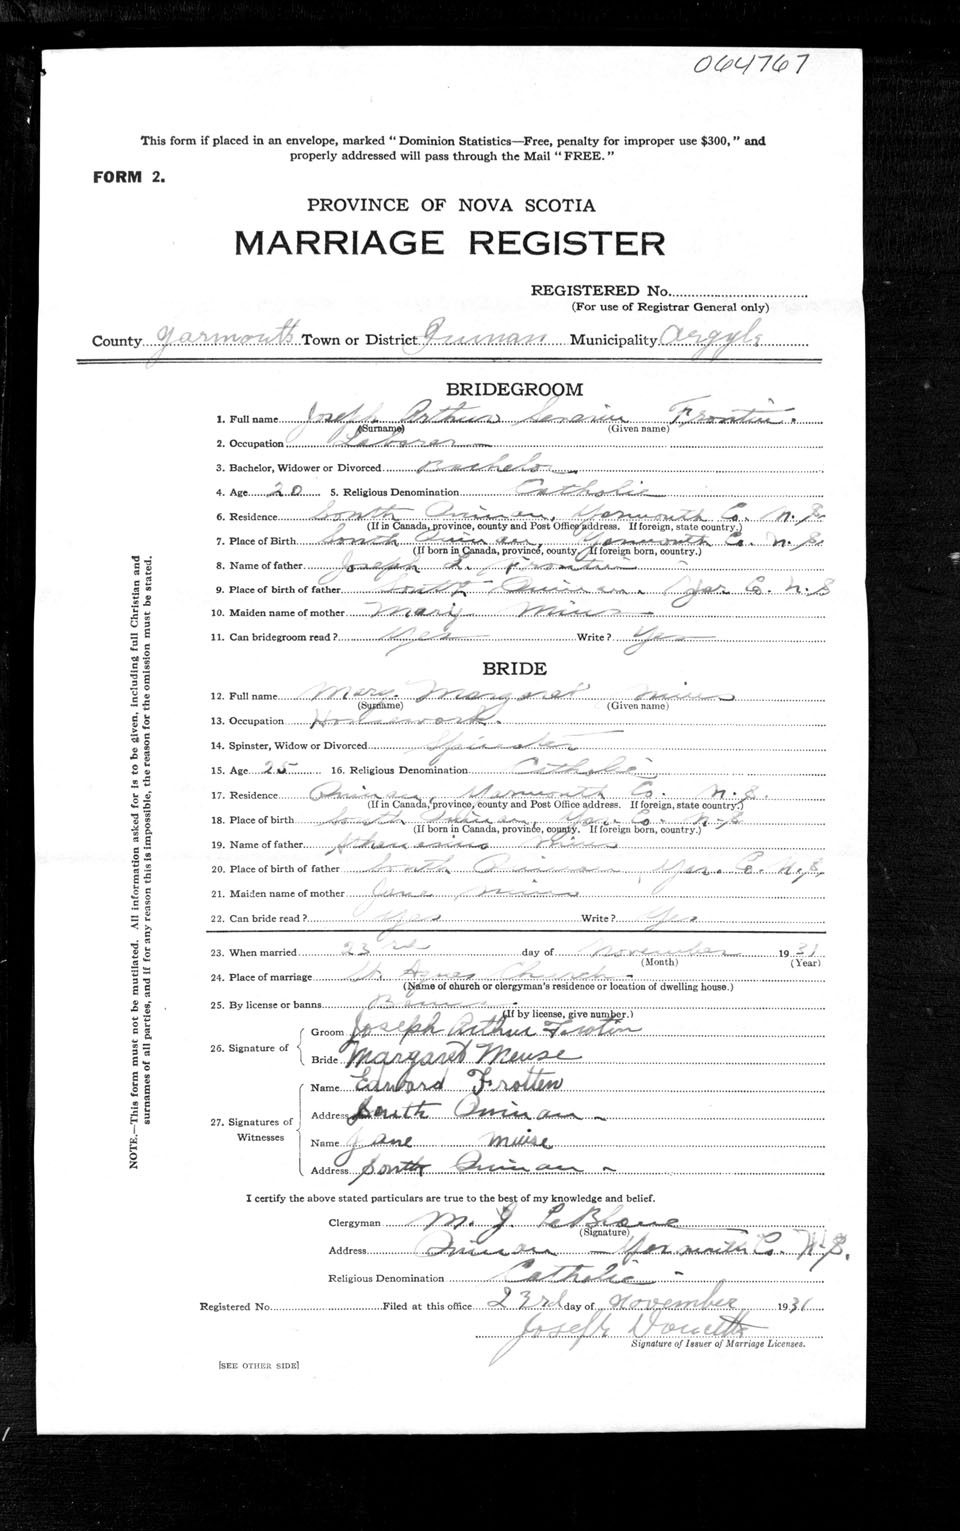 064767
This form if placed in an envelope, marked "Dominion Statistics—Free, penalty for improper use $300," and
properly addressed will pass through the Mail "FREE."
FORM 2.
PROVINCE OF NOVA SCOTIA
MARRIAGE REGISTER
REGISTERED No.
(For use of Registrar General only)
County Yarmouth Town or District Quinan Municipality Argyle
BRIDEGROOM
1. Full name Joseph Arthur Severin Frontin
(Surname) (Given name)
2. Occupation Laborer
3. Bachelor, Widower or Divorced Bachelor
4. Age 20 5. Religious Denomination Catholic
6. Residence South Quinan, Yarmouth Co. N.S.
(If in Canada, province, county and Post Office address. If foreign, state country.)
7. Place of Birth South Quinan, Yarmouth Co. N.S
(If born in Canada, province, county. If foreign born, country.)
8. Name of father Joseph L. Frontin
9. Place of birth of father South Quinan, Yar Co. N.S
10. Maiden name of mother Mary Mius
11. Can bridegroom read? Yes Write? Yes
BRIDE
12. Full name Mary Margaret Mius
(Surname) (Given name)
13. Occupation Housework
14. Spinster, Widow or Divorced Spinster
15. Age 25 16. Religious Denomination Catholic
17. Residence Quinan, Yarmouth Co. N.S.
(If in Canada, province, county and Post Office address. If foreign, state country.)
18. Place of birth South Quinan, Yar. Co. N.S
(If born in Canada, province, county. If foreign born, country.)
19. Name of father Mius
20. Place of birth of father South Quinan, Yar. Co. N.S.
21. Maiden name of mother Jane Mius
22. Can bride read? Yes Write? Yes
23. When married 23rd day of November 1931
(Month) (Year)
24. Place of marriage St. Agnes Church
(Name of church or clergyman's residence or location of dwelling house.)
25. By license or banns Banns
(If by license, give number.)
26. Signature of
Groom Joseph Arthur Frotin
Bride Margaret Meuse
27. Signatures of Witnesses
Name Edward Frotten
Address South Quinan
Name Jane Muise
Address South Quinan
I certify the above stated particulars are true to the best of my knowledge and belief.
Clergyman M. J. LeBlanc
(Signature)
Address Quinan Yarmouth Co. N.S.
Religious Denomination Catholic
Registered No. Filed at this office 23rd day of November 1931
Joseph Doucette
Signature of Issuer of Marriage Licenses.
[SEE OTHER SIDE]
NOTE.—This form must not be mutilated. All information asked for is to be given, including full Christian and
surnames of all parties, and if for any reason this is impossible, the reason for the omission must be stated.